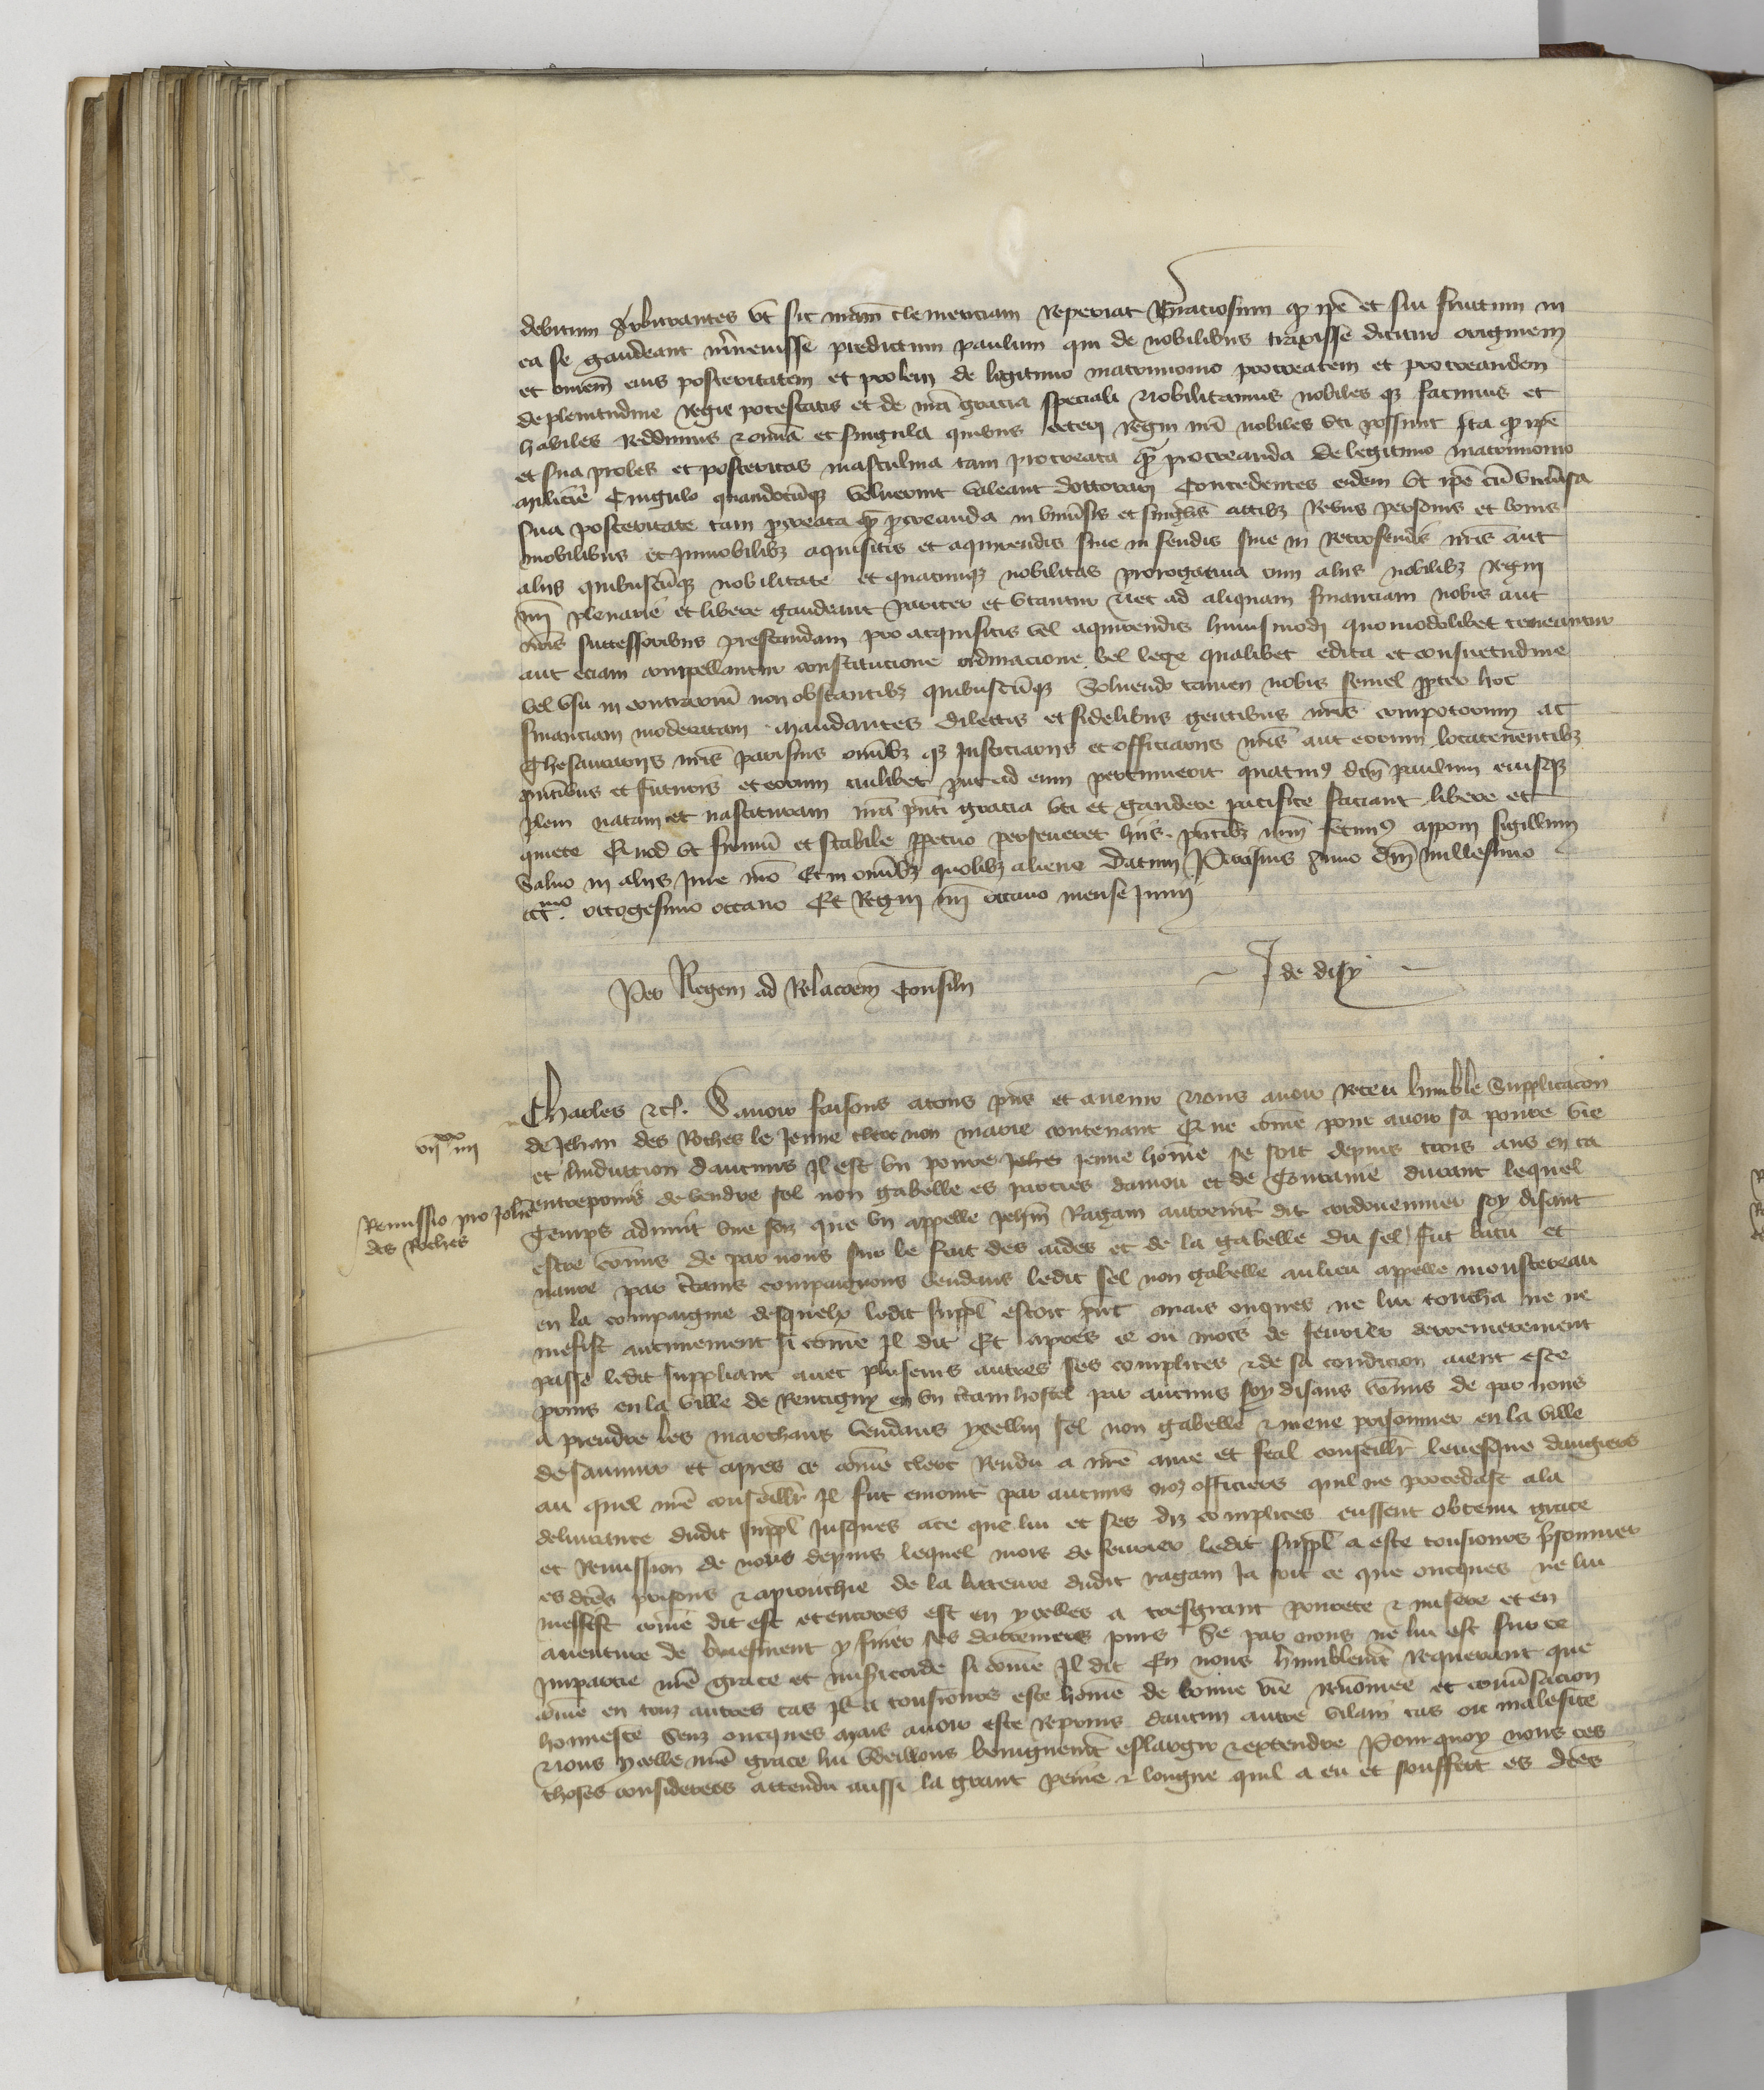 debitum Arbitrantes vt sic nram clemenciam reperiat graciosum qd ipe et sui fructum in
ea se gaudeant inuenisse predictum paulum qui de nobilibus traxisse dicitur originem
et omem eius posteritatem et prolem de legitimo matrimonio procreatem et procreandem
de plenitudine Regie potestatis et de nra gracia speciali nobilitamus nobiles qz facimus et
habiles reddimus ad omia et singula quibus ceteri Regni nri nobiles vti possunt Ita qd ipe
et sua proles et posteritas masculina tam procreata qm procreanda de legitimo matrimonio
milicie Cingulo quandocuqz voluerint valeant decorari Concedentes eidem vt ipe cu vniusa
sua posteritate tam pcreata qm pcreanda in vniusis et singlis actibz Rebus personis et bonis
mobilibus et Inmobilibz aquisitis et aquirendis siue in feudis siue in Retrofeudis nris aut
aliis quibuscuqz nobilitate et quacunqz nobilitas prerogatiua cum aliis nobilibz Regni
nri plenarie et libere gaudeant pariter et vtantur nec ad aliquam financiam nobis aut
nris successoribus prestandam pro acquisitis vel aquirendis huiusmodi quomodolibet teneantur
aut eciam compellantur constitucione ordinacione vel lege qualibet edita et consuetudine
vel vsu in contrariu non obstantibz quibuscuqz Soluendo tamen nobis semel ppter hoc
financiam moderatam Mandantes dilectis et fidelibus gentibus nris compotorum ac
Thesaurariis nris parisius omibz qz Iusticiariis et officiariis nris aut eorum locatenentibz
pntibus et futuris et eorum cuilibet put ad eum pertinuerit quatin9 dcm paulum eiusqz
plem natam et nascituram nra pnti gracia vti et gaudere pacifice faciant libere et
quiete Quod vt firmu et stabile ppetuo perseueret hiis pntibz nrm fecim9 apponi sigillum
Saluo in aliis Iure nro Et in omibz quolibz alieno Datum Parisius Anno dni millesimo
ccc.mo octogesimo octauo Et Regni nri octauo mense Iunii
Per Regem ad Relacoem Consilii
J de disy
Charles etc. Sauoir faisons a tous pns et auenir Nous auoir receu lumble Supplicacon
vii xx iiii
de Jehan des Roches le Jeune clerc non marie contenant Que come pour auoir sa poure vie
et Induction daucuns Il est vn poure Jehan jeune home se soit depuis trois ans en ca
Remissio pro Johe
des Roches
entrepomis de vendre sel non gabelle es parties daniou et de Touraine durant lequel
Temps aduint vne foiz que vn appelle Jehan Ragam autremt dit cordouennier soy disant
estre comis de par nous sur le fait des aides et de la gabelle du sel fut batu et
naure par ctains compaignons vendans ledit sel non gabelle au lieu appelle monstereau
en la compaignie desquelx ledit suppl estoit pnt mais onques ne lui toucha ne ne
mesfist aucunement si come Il dit Et apres ce ou mois de feurier derrenierement
passe ledit suppliant auec pluseurs autres ses complices & de sa condicion aient este
prins en la ville de Rentigny en vn ctain hostel par aucuns soy disans comis de par nous
a prendre les marchans vendans ycellui sel non gabelle & mene prisonnier en la ville
de saumur et apres ce come clerc Rendu a nre ame et feal conseillr leuesque dangiers
au quel nre conseillr Il fut enioint par aucuns noz officiers quil ne procedast a la
deliurance dudit suppl Iusques a ce que lui et ses diz complices eussent obtenu grace
et Remission de nous depuis lequel mois de feurier ledit suppl a este tousiours prisonnier
es dces prisons & apiouchie de la bateure dudit ragam Ia soit ce que oncques ne lui
meffist come dit est et encores est en ycelles a tresgrant pourete & misere et en
auenture de briefment y finer ses derreniers iours Se par nous ne lui est sur ce
Impartie nre grace et misericorde si come Il dit En nous humblemt requerant que
come en touz autres cas Il a tousiours este home de bonne vie Renomee et conusacion
honneste Senz oncques mais auoir este reprins daucun autre vilain cas ou malefice
Nous ycelle nre grace lui veillons benignemt eslargir & extendre Pour quoy nous ces
choses considerees attendu aussi la grant peine & longue quil a eu et souffert es dces